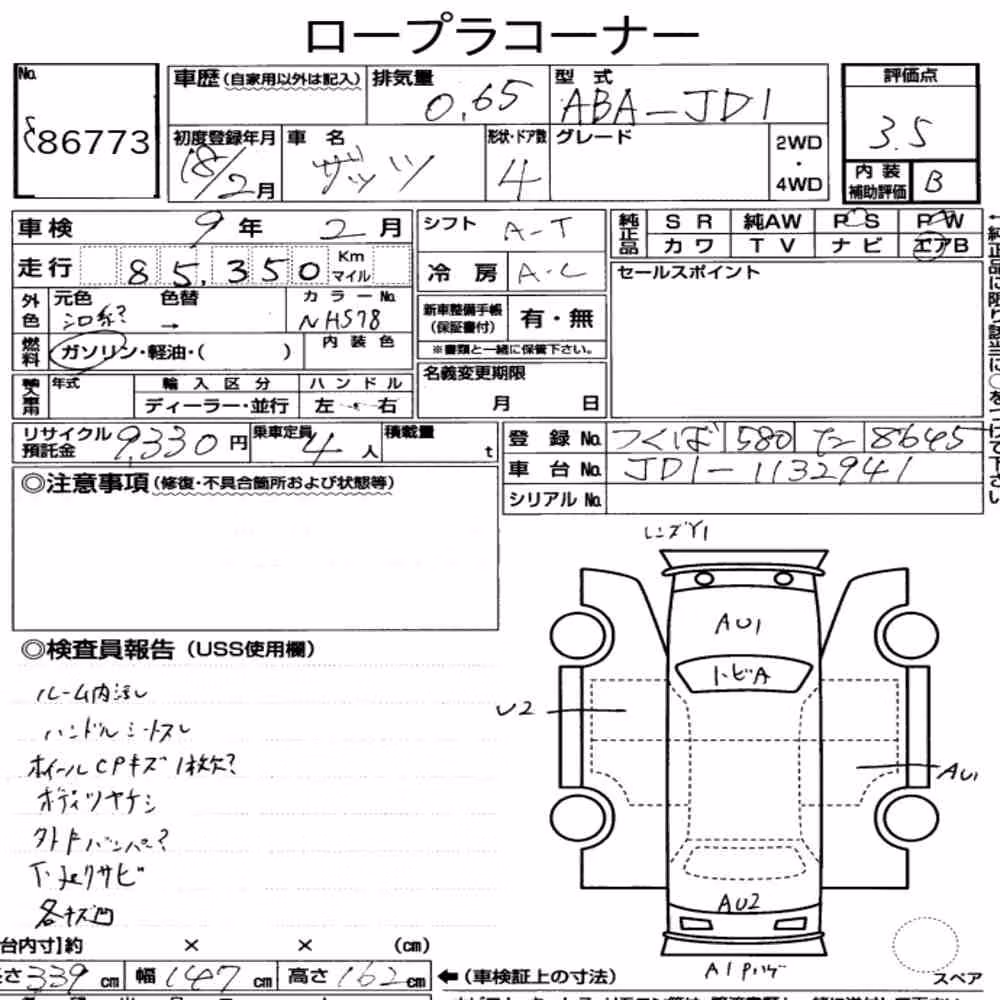 ロープラコーナー
No.
86773
車歴(自家用以外は記入)
排気量
0.65
型 式
ABA-JD1
評価点
3.5
初度登録年月
18/2月
車 名
ザッツ
形状・ドア数
4
グレード
2WD
・
4WD
内 装
補助評価
B
車検 9年 2月
シフト
A-T
純正品
S R
純AW
P S
P W
カ ワ
T V
ナ ビ
エアB
走行 85,350
Km
マイル
冷 房
A-C
セールスポイント
外色
元色
色替
→
カ ラ ー No.
NH578
新車整備手帳
(保証書付)
有・無
※書類と一緒に保管下さい。
燃料
ガソリン・軽油・( )
内 装 色
名義変更期限
月 日
年式
輸 入 区 分
ハ ン ド ル
ディーラー・並行
左 ・ 右
リサイクル
預託金
9,330円
乗車定員
4人
積載量
t
登 録 No.
つくば 580 た 8645
車 台 No.
JD1-1132941
シリアル No.
◎注意事項(修復・不具合箇所および状態等)
レンズY1
AU1
トビA
U2
AU1
AU2
A1
スペア
◎検査員報告(USS使用欄)
ルーム内汚レ
ハンドルシートスレ
ホイールCPキズ1枚欠?
ボディツヤナシ
下廻りサビ
各キズ凹
台内寸】約 × × (cm)
さ339cm
幅147cm
高さ162cm
←(車検証上の寸法)